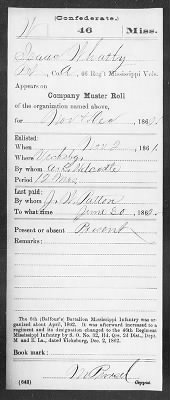 (Confederate.)
46 Miss.
Isaac Whatly
Co. A, 46 Reg't Mississippi Vols.
Appears on
Company Muster Roll
of the organization named above,
for Nov & Dec, 186
Enlisted:
When Nov 2, 186
Where Vicksburg
By whom
Period 12 mos
Last paid:
By whom J. W. Patton
To what time June 30, 1862.
Present or absent Present
Remarks:
The 6th (Balfour's) Battalion Mississippi Infantry was organized about April, 1862. It was afterward increased to a regiment and its designation changed to the 46th Regiment Mississippi Infantry by S. O. No. 62, Hd. Qrs. 2d Dist., Dept. M. and E. La., dated Vicksburg, Dec. 2, 1862.
Book mark:
(642) Copyist.